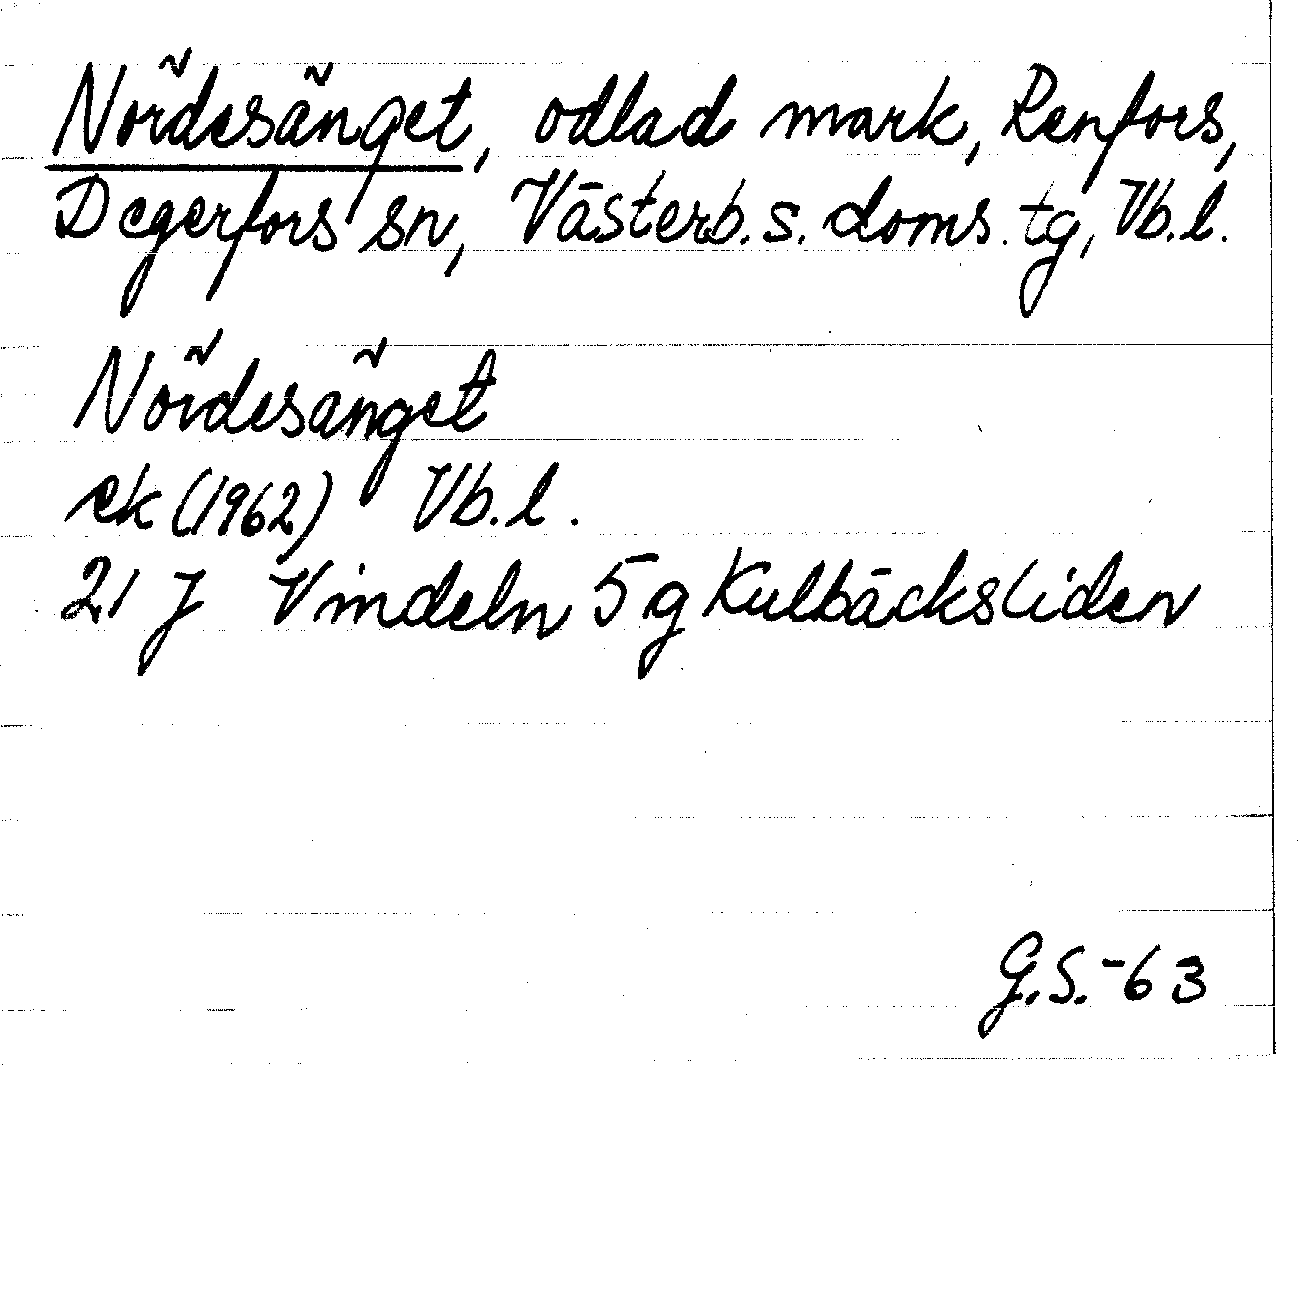 Nördesänget, odlad mark, Renfors,
Degerfors sn, Västerb. s. doms. tg, Vb. l.
Nördesänget
ek (1962) Vb. l.
21 J Vindeln 5 g Kulbäcksliden
G.S.-63